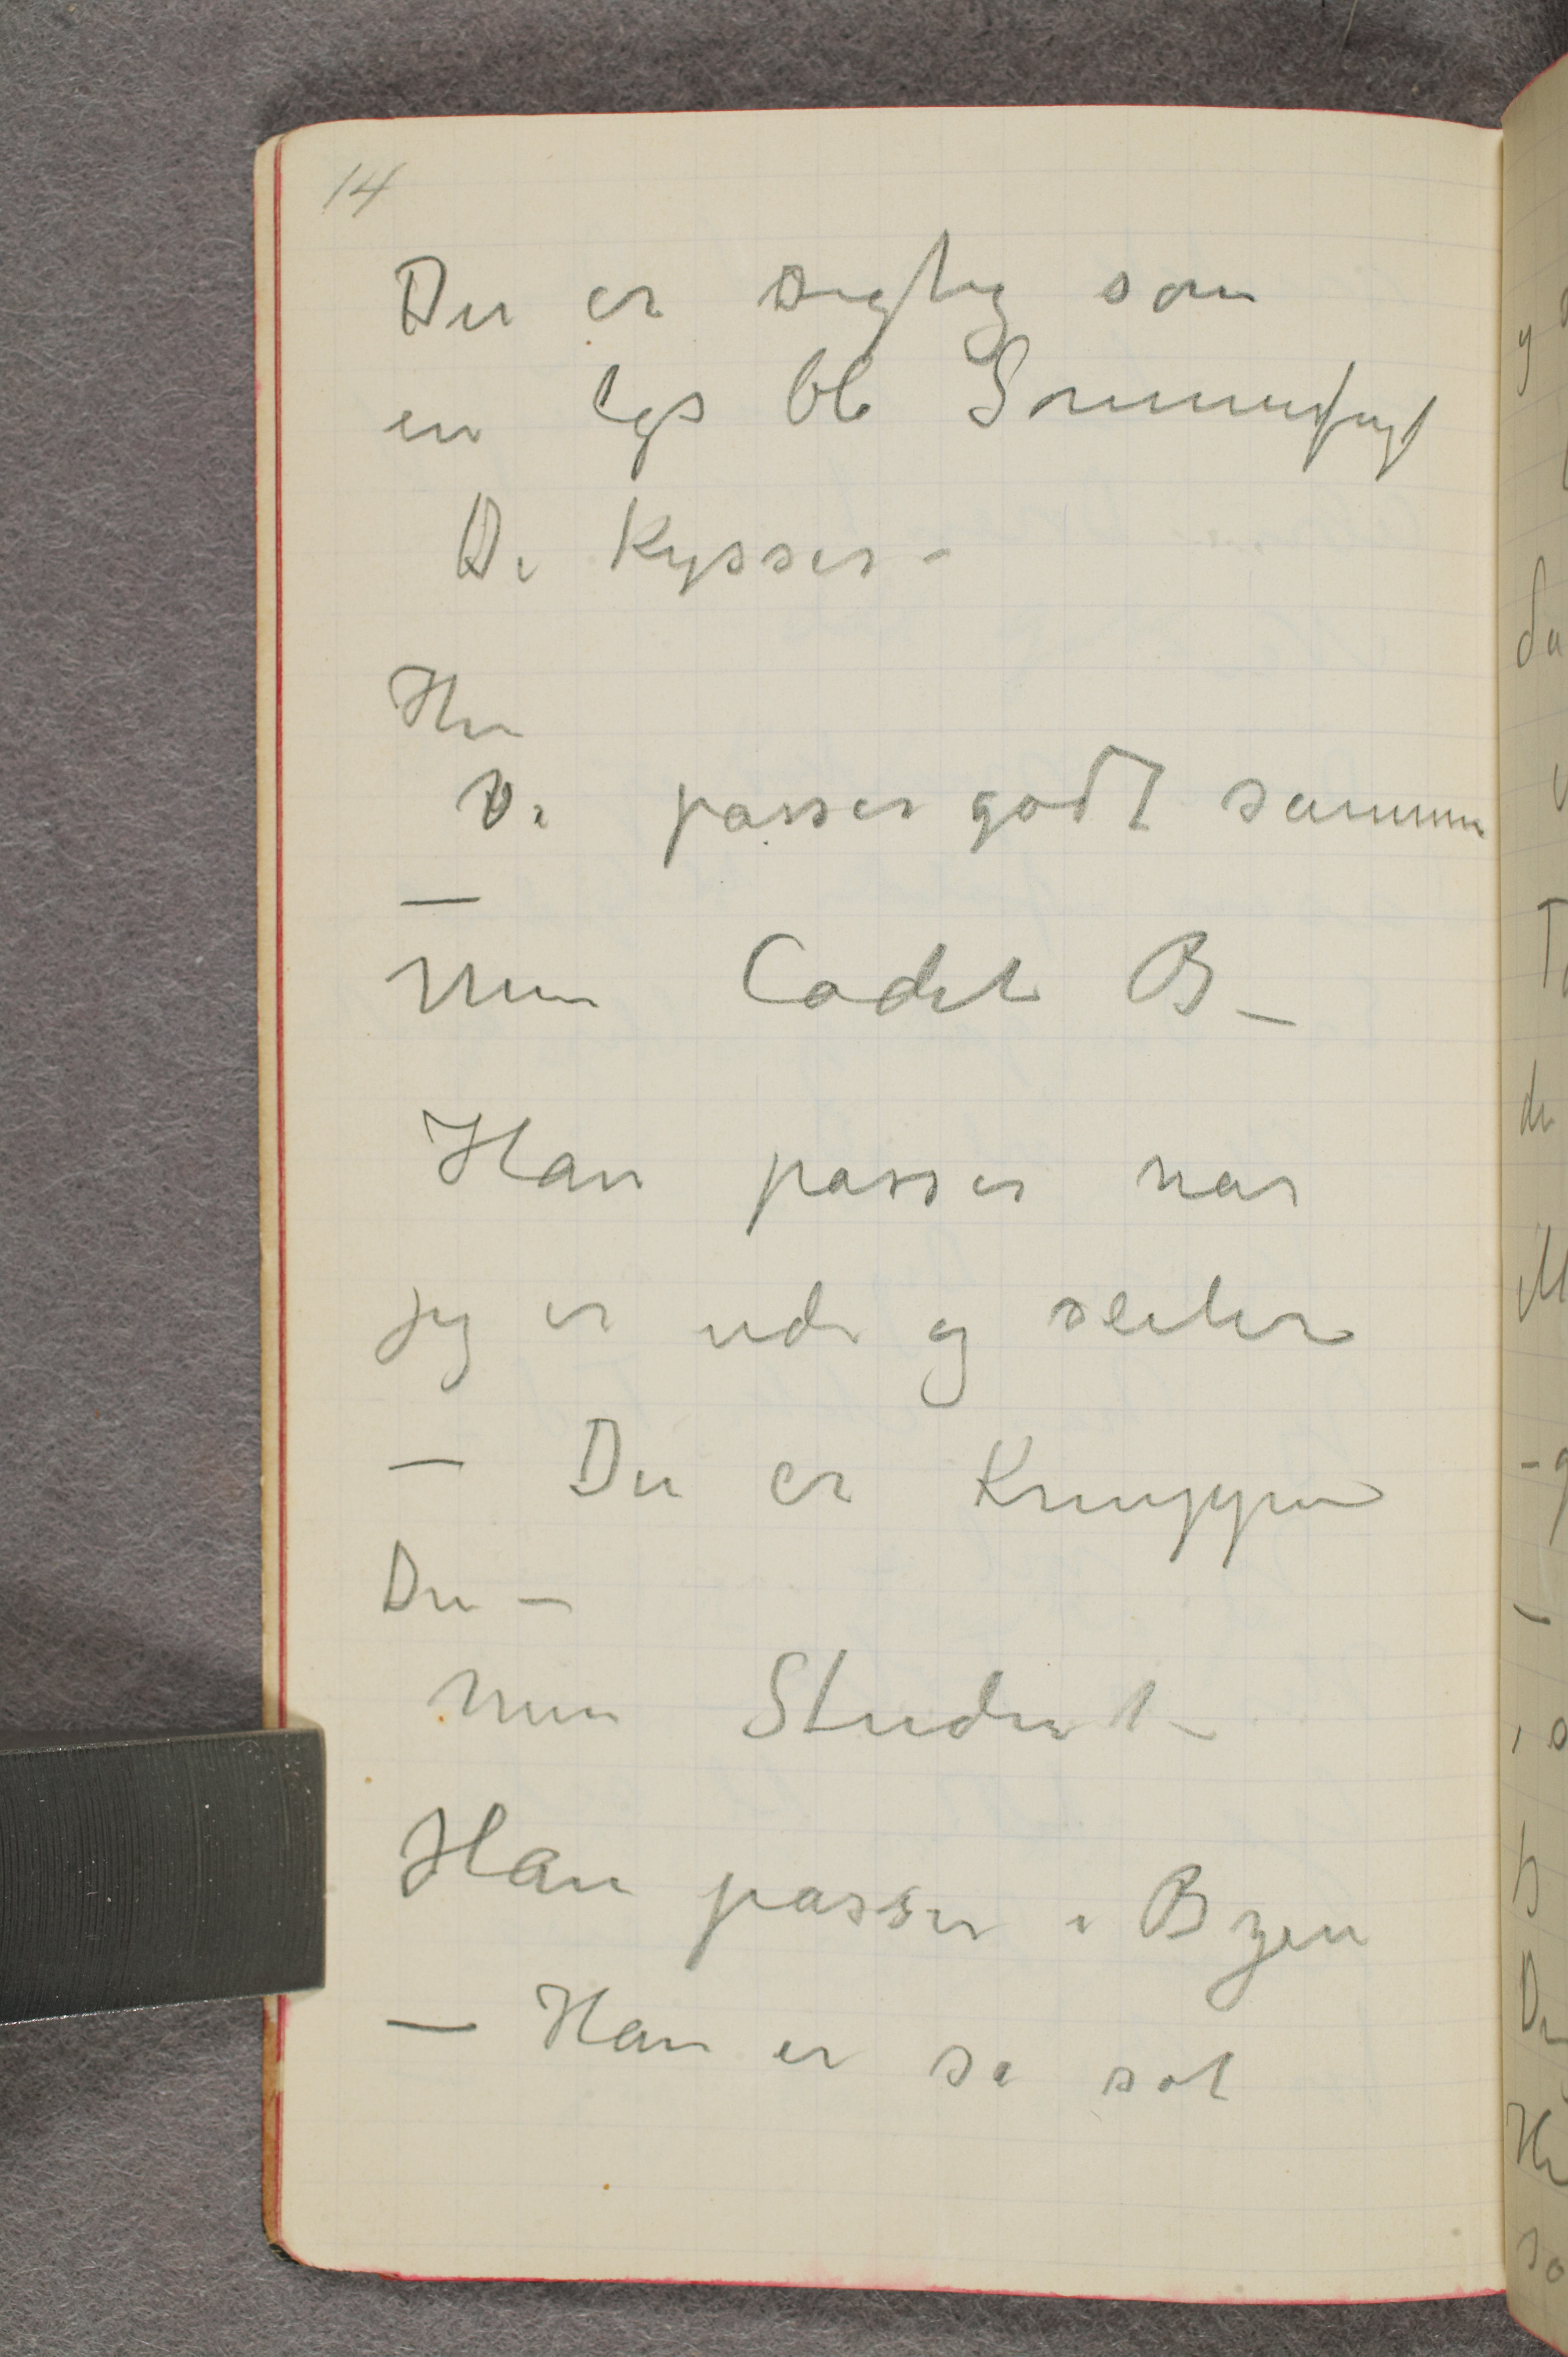 14
Du er deglig som
en lys blå Sommerfugl
De Kysser –
Hun
Vi passer godt sammen
—
Min Cadet B –
Han passer når
jeg er ude og seiler
— Du er Knuppen
Du –
Min Student –
Han passer i Byen
— Han er så sot